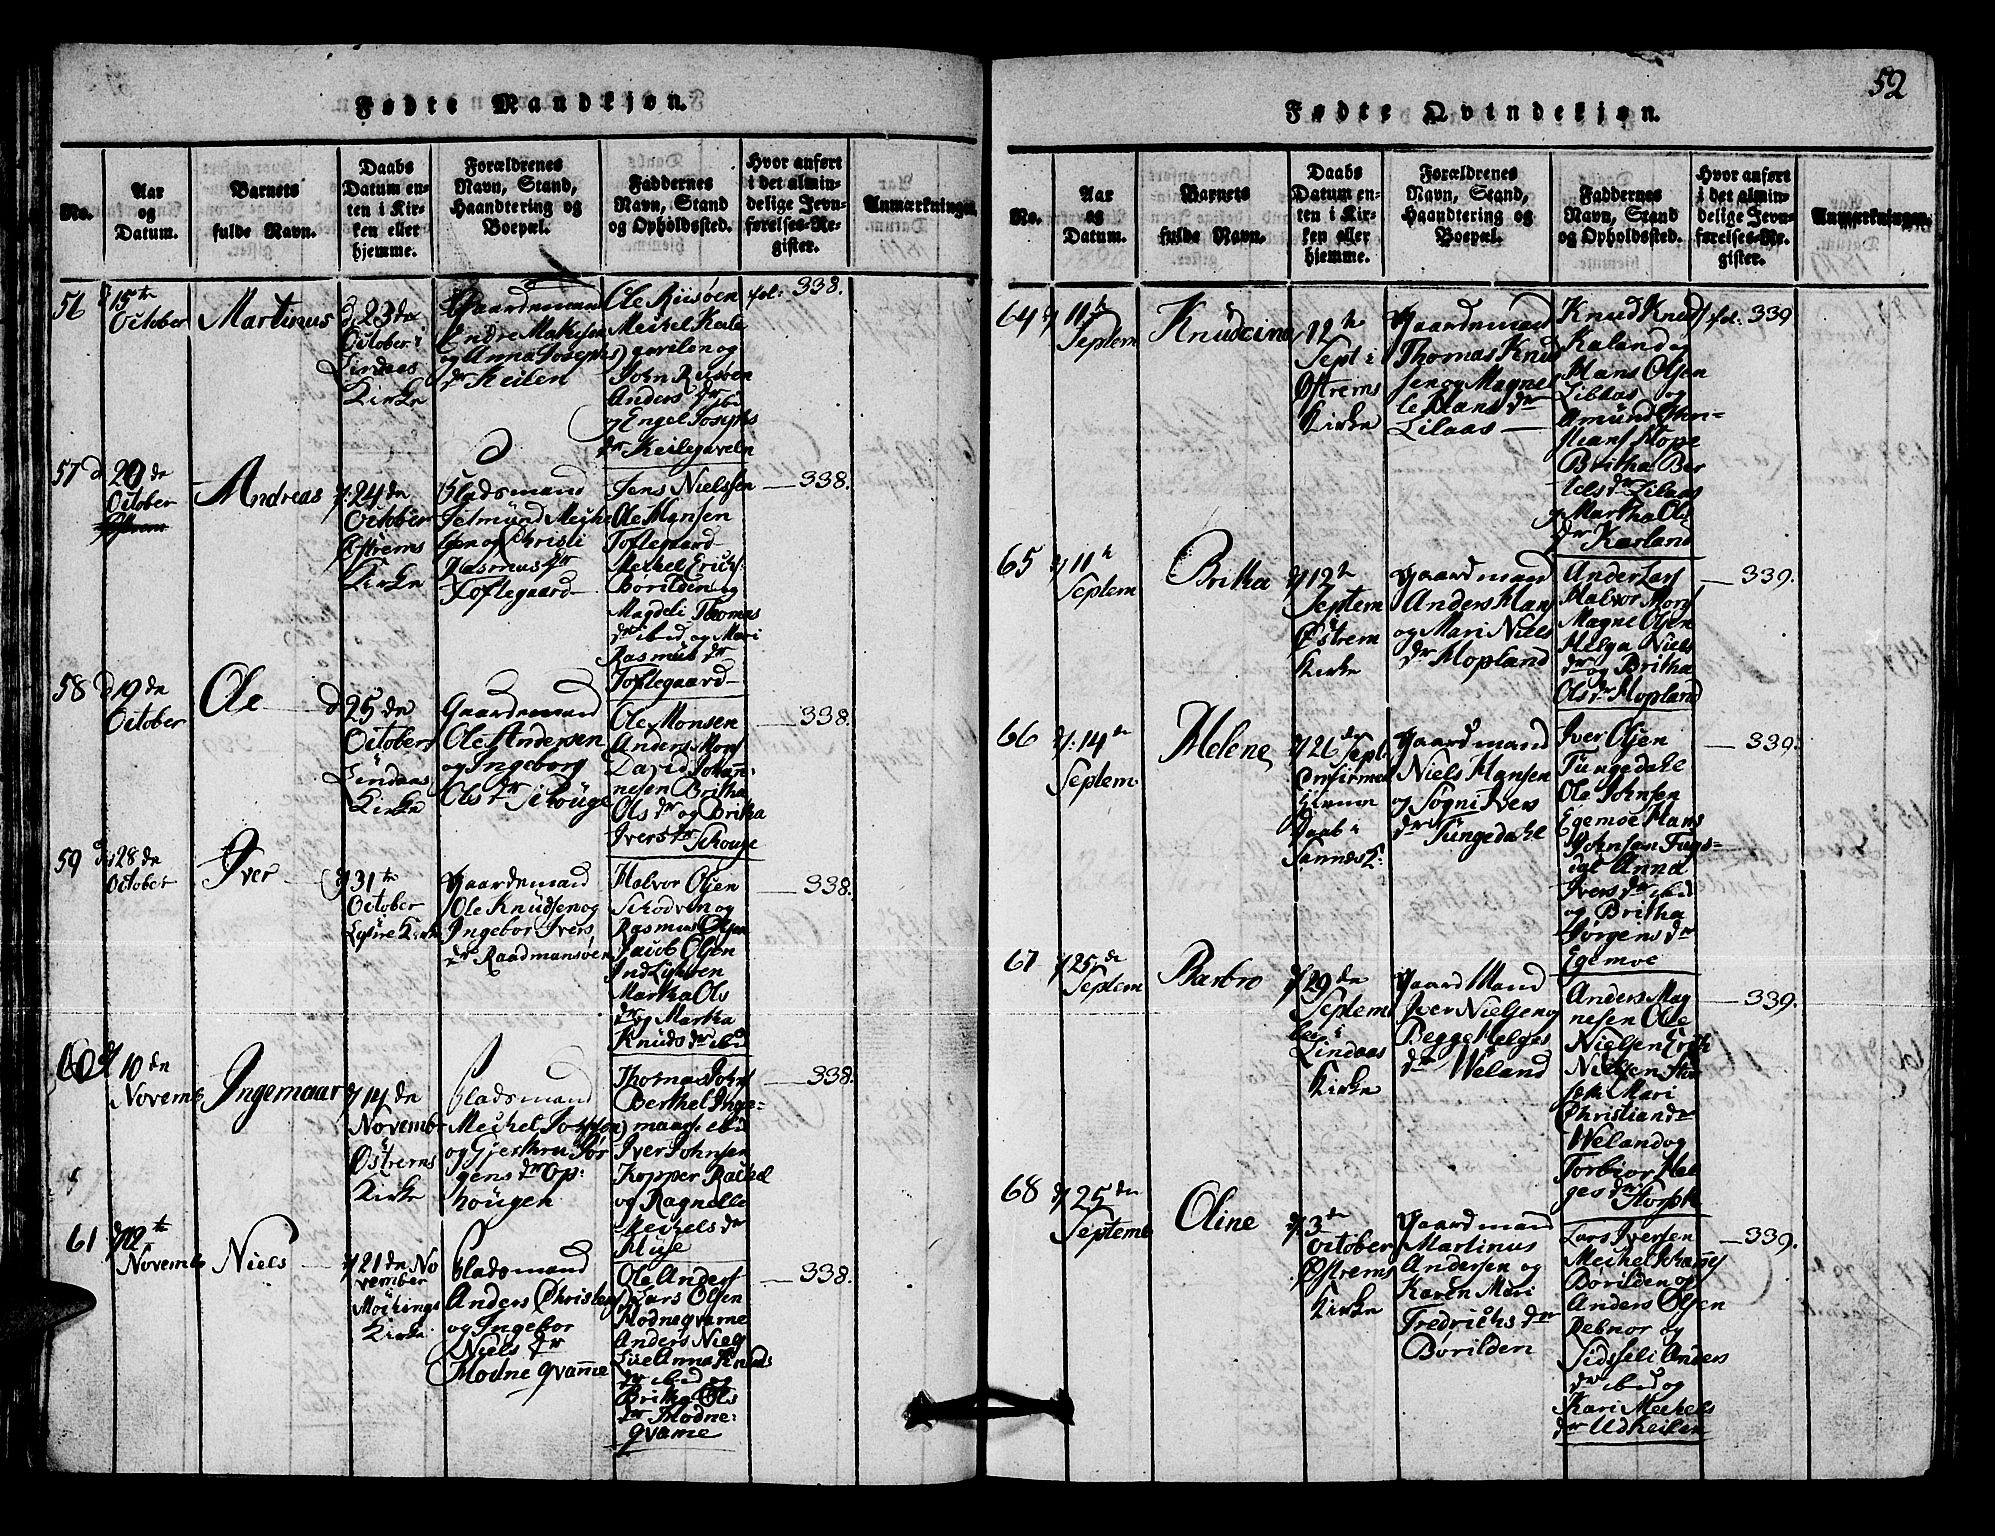 Fødte Mandkjøn.
No.
Aar
og
Datum.
Barnets
fulde Navn.
Daabs
Datum en-
ten i Kir-
ken eller
hjemme.
Forældrenes
Navn, Stand,
Haandtering og
Boepæl.
Faddernes
Navn, Stand
og Opholdssted.
Hvor anført
i det almin-
delige Jevn-
førelses-Re-
gister.
Anmærkninger.
56
15te
October
Martinus
d 23de
October i
Lindaas
Kirke
Gaardmand
Endre
og Anna Josephs
dr Keilen
Ole Riisøen
Meikel Keile
gavlen og
John Riisøen
Anders
og Engel Josephs
dr Keilegaveln
fol: 338.
57
d 20de
October
Andreas
d 24de
October
Østrems
Kirke
Pladsmand
Meike
sen og Christi
Rasmus dr
Toftegaard
Jens Nielssen
Ole Mansen
Toftegaard
Meikel Erichs
Børilden og
Magdeli Thomas
dr ibid og Mari
Rasmus dr
Toftegaard
338.
58
d 19de
October
Ole
d 25de
October
Lindaas
Kirke
Gaardmand
Ole Andersen
og Ingeborg
Ols dr Schouge
Ole Monsen
Anders Mons
David Johan-
nesen Britha
Ols dr og Britha
Ivers dr Schouge
338.
59
28de
October
Iver
d 31te
October
Lygre Kirke
Gaardmand
Ole Knudsen og
Ingebor Ivers
dr Raadmansøen
Halvor Olsen
Schodven og
Rasmus Olsen
Jacob Olsen
Martha Ols
dr og Martha
Knuds dr ibid
338.
60
d 10de
Novemb
Ingemaar
d 14de
Novemb
Østrems
Kirke
Pladsmand
Meikel
og Gjerthru Jør
gens dr Op-
hougen
Thomas Johns
Berthel Inge-
maars ibid
Iver Johnsen
Kopper Rachel
og Ragnelle
Meikels dr
338.
61
d 12te
Novemb
Niels
d 21de No
vember
Mochings
Kirke
Pladsmand
Anders Christens
og Ingebor
Niels dr
Hodne qvamme
Ole Anders
Lars Olsen
Hodneqvame
Anders Niels
Anna Knuds
dr ibid og
Britha Ols
dr Hodne-
qvame
338.
52
Fødte Qvindekjøn.
No.
Aar
og
Datum.
Barnets
fulde Navn.
Daabs
Datum en-
ten i Kir-
ken eller
hjemme.
Forældrenes
Navn, Stand,
Haandtering og
Boepæl.
Faddernes
Navn, Stand
og Opholdssted.
Hvor anført
i det almin-
delige Jevn-
førelses-Re-
gister.
Anmærkninger.
64
d 11te
Septem
Knudcina
12te
Sept i
Østrems
Kirke
Gaardmand
Thomas Knud
sen og Magne
le Hans dr
Lilaas
Knud Knuds
Kaland og
Hans Olsen
Liblas og
Amund
Hope
Britha Ber
tels dr Lilaas
og Martha Ols
dr Karland
fol. 339
65
d 11te
Septem
Britha
d 12te
Septem
Østrem
Kirke
Gaardmand
Anders Hans
og Mari Niels
dr Hopland
Ander Lars
Halvor Mons
Magne Olsen
Helga Niels
dr og Britha
Ols dr Hopland
339.
66
d: 14de
Septem
Helene
d 26de Sept
Confirmeret
Hiemme
Daab i
Sannes K:
Gaardmand
Niels Hansen
og Søgni Ivers
dr Tungedahl
Iver Olsen
Tungedahl
Ole Johnsen
Egemoe Hans
Johnsen Fugs-
dal Anna
Ivers dr ibid
og Britha
Jørgens dr
Egemoe
339.
67
d 25de
Septem
Barbro
d 29de
Septem
ber i
Lindaas
Kirke
Gaard Mand
Iver Nielsen og
Begge Helges
dr Weland
Anders Mag
nesen Ole
Nielsen Erik
Nielsen
Mari
Christians dr
Weland og
Torbior Hel
ges dr
339.
68
d 25de
Septemb
Oline
d 3de
October
Østrems
Kirke
Gaardmand
Martinus
Andersen og
Karen Mari
Fredrichs dr
Børilden
Lars Iversen
Meikel Johannes
Borilden og
Anders Olsen
Rebnor og
Sidsseli Anders
dr ibid og
Kari Meikels
dr Udkeilen
339.